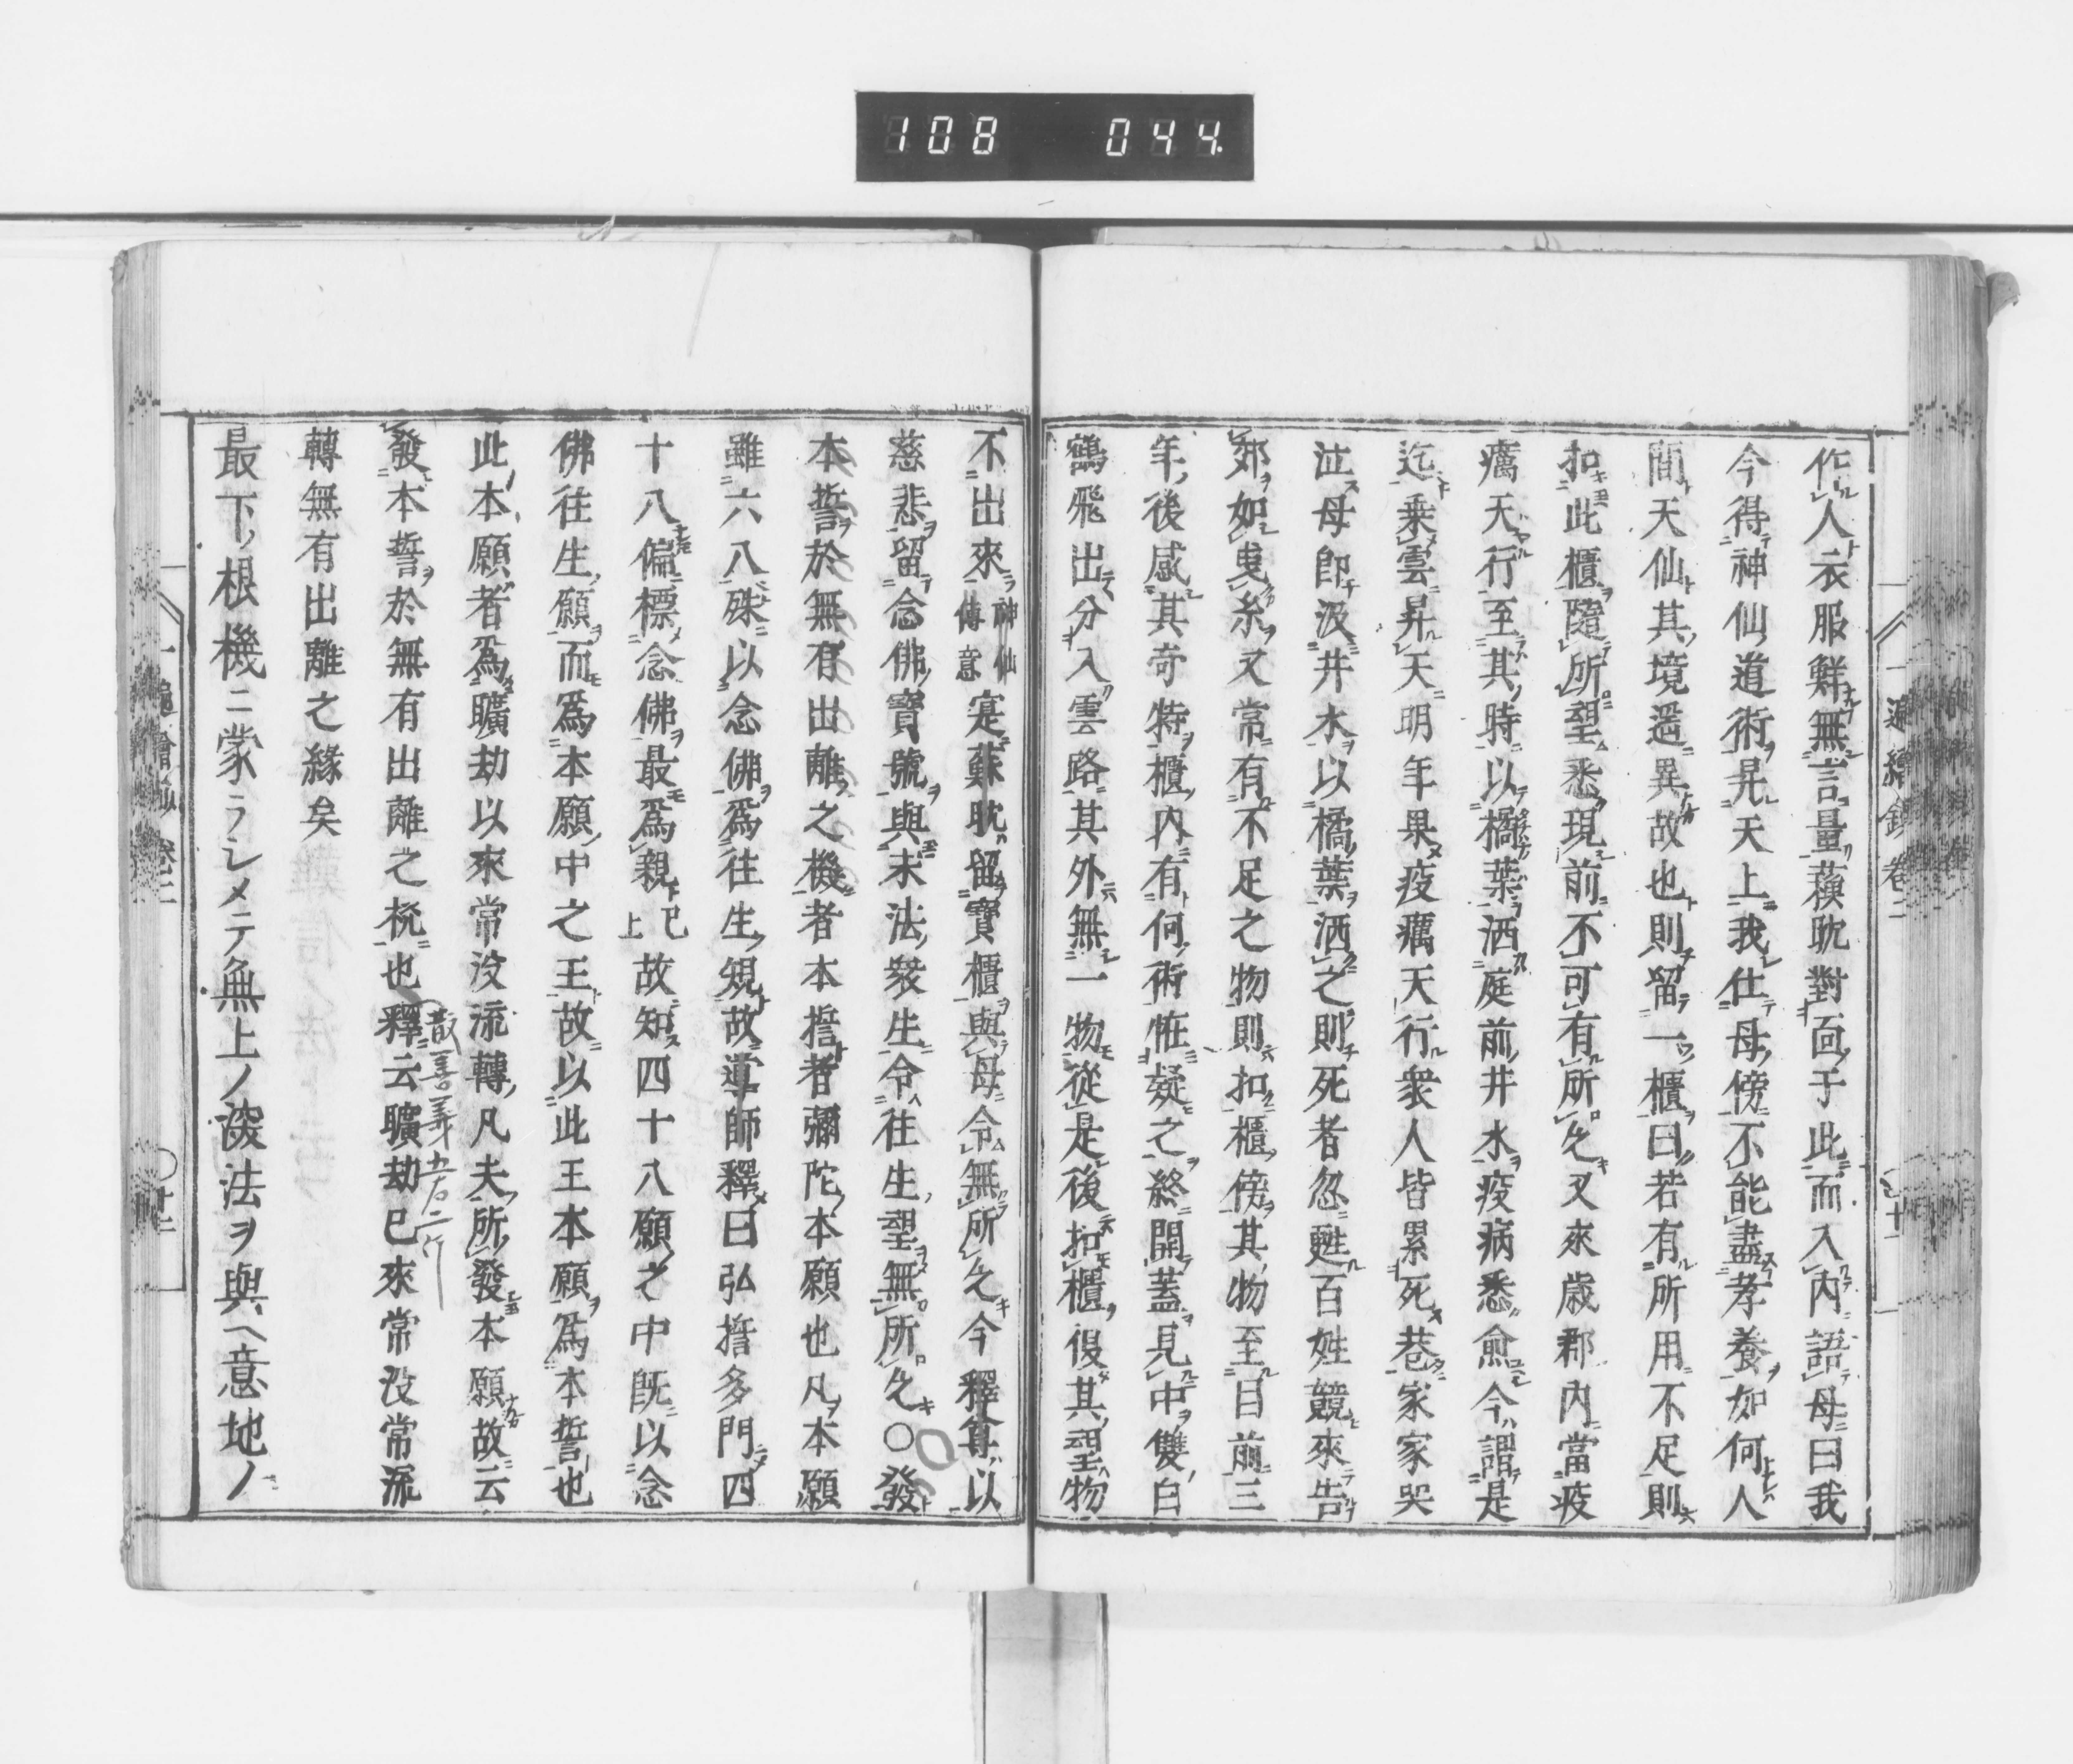 108 044.
作人衣服鮮無言量蘓耽對面于此而入內語母曰我
今得神仙道術昇天上我仕母傍不能盡孝養如何人
間天仙其境遥異故也則留一櫃曰若有所用不足則
扣此櫃隨所望悉現前不可有所乏又來歳郡內當疫
癘天行至其時以橘葉洒庭前井水疫病悉愈今謂是
迄乗雲昇天明年果疫癘天行衆人皆累死巷家家哭
泣母即汲井水以橘葉洒之則死者忽甦百姓競來告
郊如曳糸又常有不足之物則扣櫃傍其物至目前三
年後感其奇特櫃內有何術恠疑之終開蓋見中雙白
鶴飛出分入雲路其外無一物從是後扣櫃侵其望物
一遍繪詞 卷二 十一
不出來神仙傳意寔蘇耽留寶櫃與母令無所乏今釋尊以
慈悲留念佛寶號與末法衆生令往生望無所乏〇發
本誓於無有出離之機者本誓者彌陀本願也凡本願
雖六八殊以念佛爲往生規故導師釋曰弘誓多門四
十八偏標念佛最爲親已上故知四十八願之中既以念
佛往生願而爲本願中之王故以此王本願爲本誓也
此本願者爲曠劫以來常沒流轉凡夫所發本願故云
發本誓於無有出離之機也釋云曠劫已來常沒常流
散善義
轉無有出離之緣矣
最下ノ根機ニ蒙ラシメテ無上ノ深法ヲ與ヘ意地ノ
十二